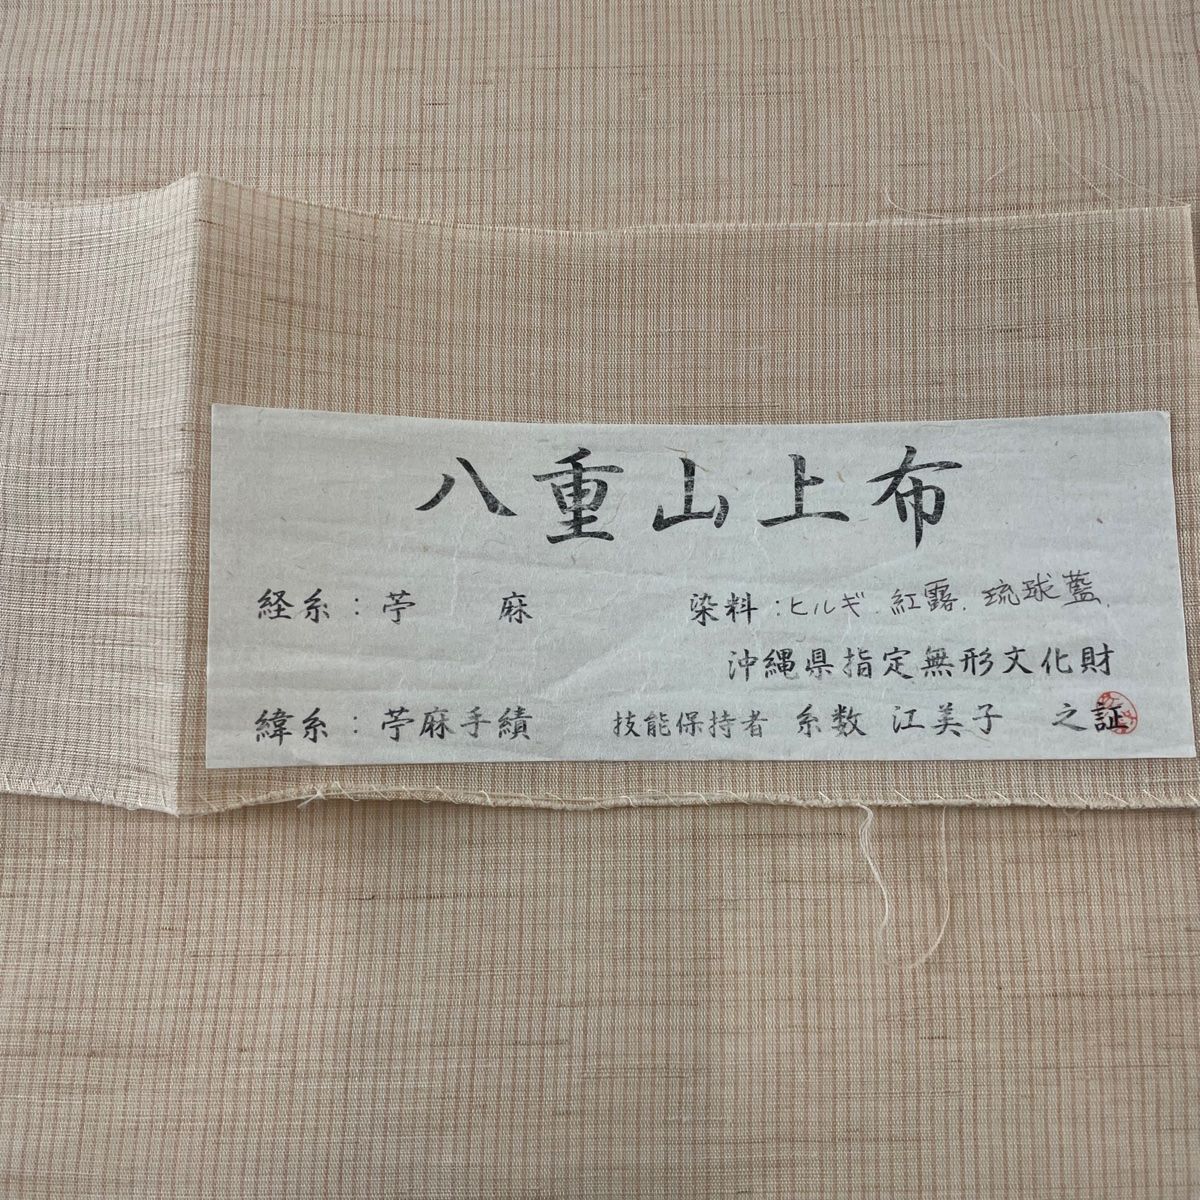 八重山上布
経糸：苧　麻
染料：ヒルギ．紅露．琉球藍．
沖縄県指定無形文化財
緯糸：苧麻手績
技能保持者　糸数　江美子　之証